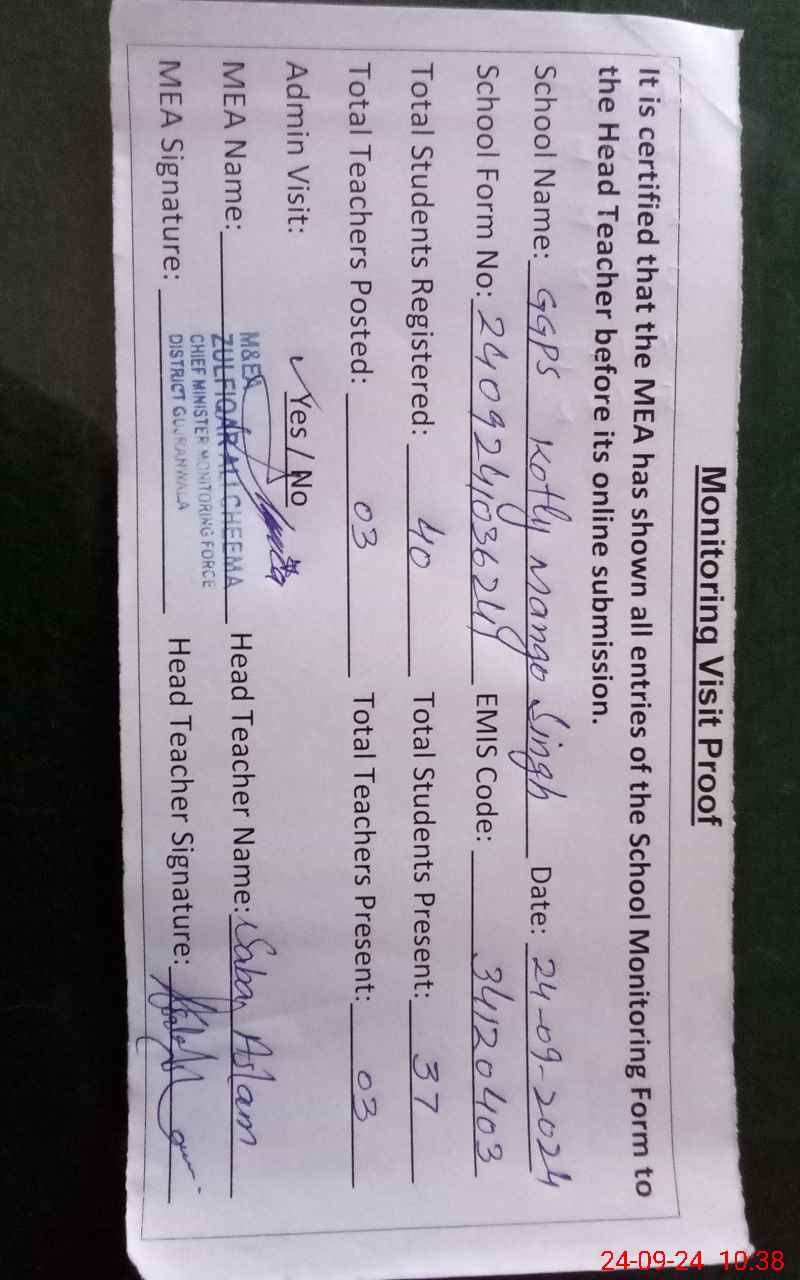 Monitoring Visit Proof
It is certified that the MEA has shown all entries of the School Monitoring Form to
the Head Teacher before its online submission.
School Name: GGPS Kotly Mango Singh Date: 24-09-2024
School Form No: EMIS Code: 34120403
Total Students Registered: 40 Total Students Present: 37
Total Teachers Posted: 03 Total Teachers Present: 03
Admin Visit: ✓Yes / No
MEA Name: Head Teacher Name: Saba Aslam
MEA Signature: Head Teacher Signature:
M&EA
ZULFIQAR ALI CHEEMA
CHIEF MINISTER MONITORING FORCE
DISTRICT GUJRANWALA
24-09-24 10:38